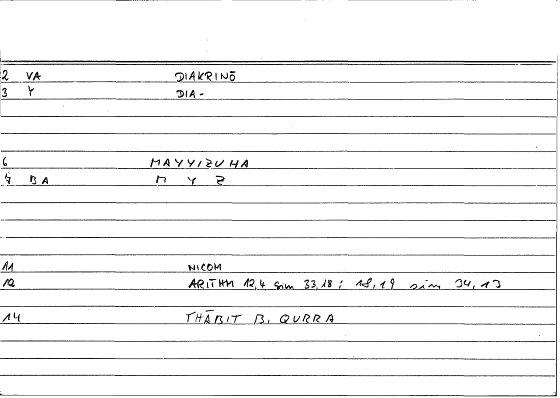 2 VA DIAKRINŌ
3 Y DIA-
6 MAYYIZUHA
7 BA M Y Z
11 NICOM
12 ARITHM 12,4 sim 33,18; 18,19 sim 34,13
14 THĀBIT B. QURRA